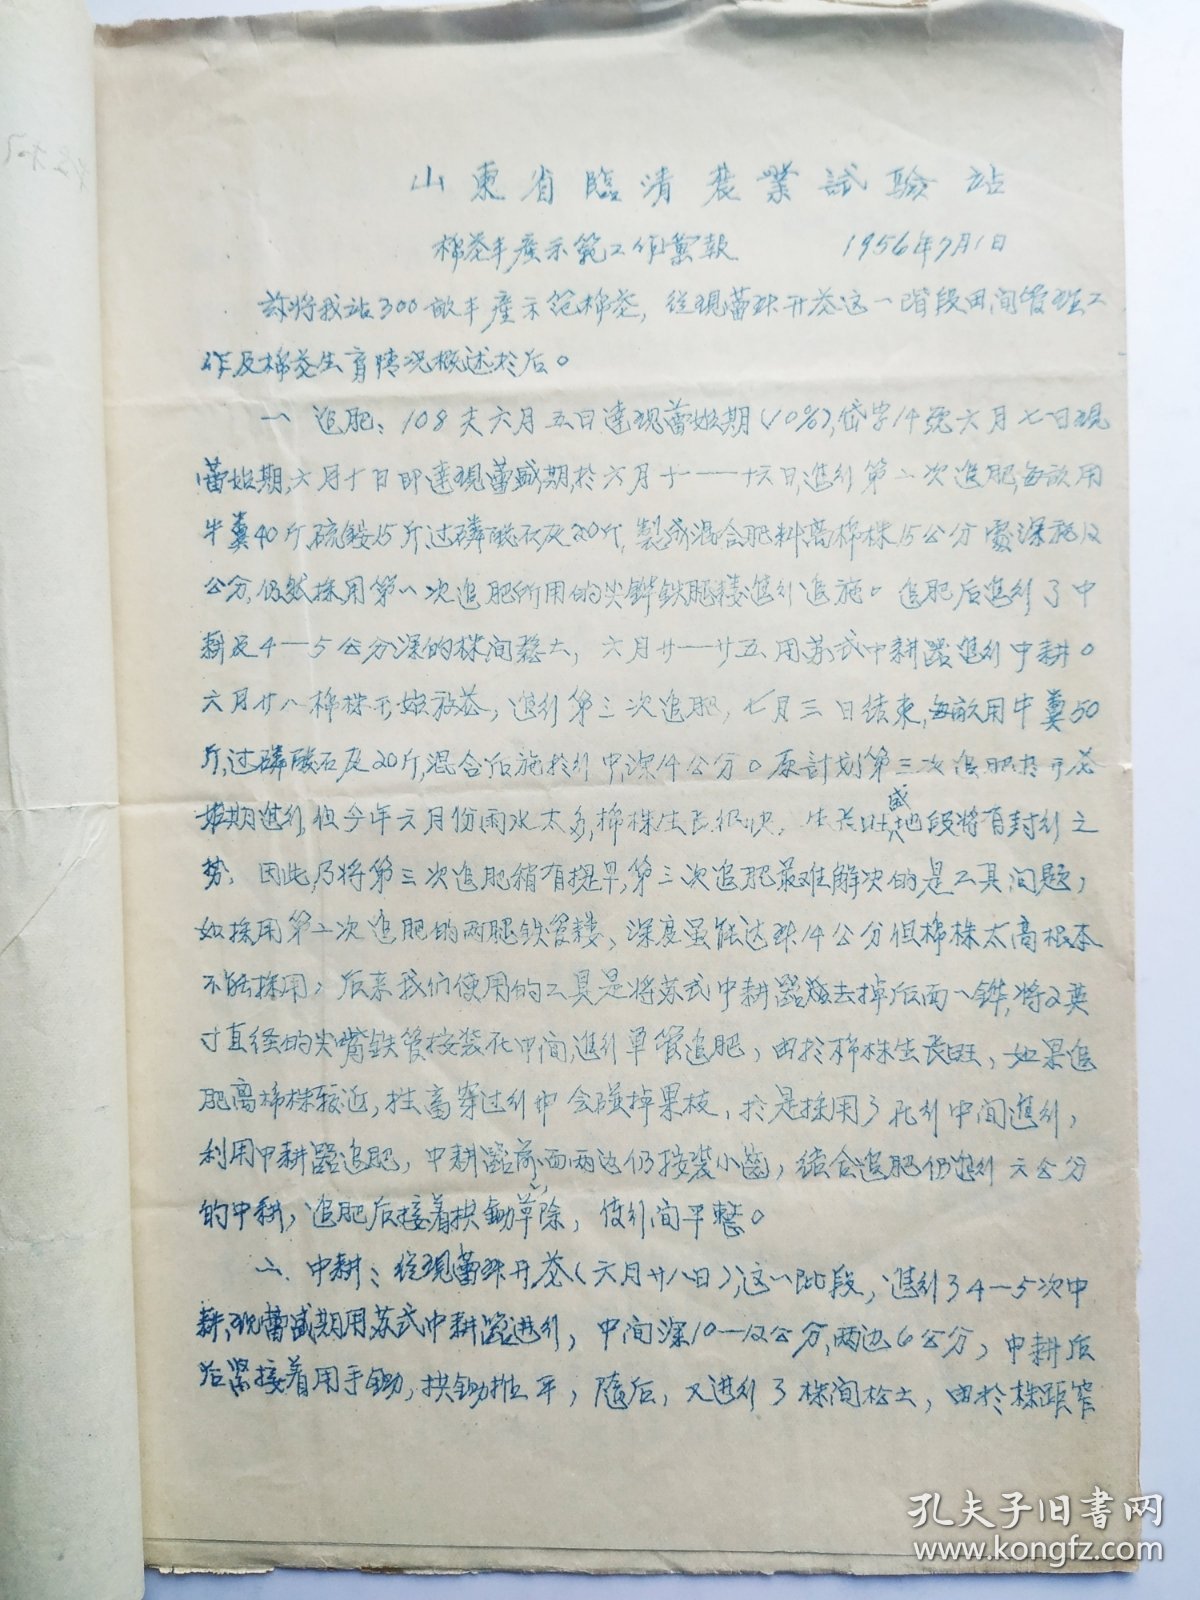 山東省臨清農業試驗站
棉花丰產示範工作彙報 1956年7月1日
兹将我站300亩丰產示范棉花,從現蕾到开花这一階段田间管理工
作及棉花生育情况概述於后。
一 追肥:108夫六月五日達現蕾始期(10%),岱字14號六月七日現
蕾始期,六月十日即達現蕾盛期,於六月十一——十六日,進行第二次追肥,每亩用
牛糞40斤,硫銨15斤,过磷酸石灰20斤,製成混合肥料,離棉株15公分處深施12
公分,仍然採用第一次追肥所用的尖鏵鉄肥耧進行追施。追肥后進行了中
耕及4—5公分深的株间鬆土,六月廿一—廿五用苏式中耕器進行中耕。
六月廿八棉株开始放花,進行第三次追肥,七月三日结束,每亩用牛糞50
斤,过磷酸石灰20斤,混合后施於行中深14公分。原計划第三次追肥於开花
始期進行,但今年六月份雨水太多,棉株生長很快,生長旺盛地段将有封行之
势,因此,乃将第三次追肥稍有提早,第三次追肥最难解决的是工具问題,
如採用第二次追肥的两腿铁管耧,深度虽能达到14公分但棉株太高根本
不能採用,后来我们使用的工具是将苏式中耕器去掉后面一鏵,将2英
寸直径的尖嘴鉄管按装在中间,進行單管追肥,由於棉株生長旺,如果追
肥离棉株较近,牲畜穿过行中会碰掉果枝,於是採用了在行中间進行,
利用中耕器追肥,中耕器前面两边仍按装小齒,结合追肥仍進行六公分
的中耕,追肥后接着拱鋤草除,使行间平整。
二、中耕:從現蕾到开花(六月廿八日),这一阶段,進行了4—5次中
耕,現蕾盛期用苏式中耕器进行,中间深10—12公分,两边6公分,中耕后
后紧接着用手鋤,拱鋤推平,随后,又进行了株间松土,由於株距窄
孔夫子旧書网
www.kongfz.com